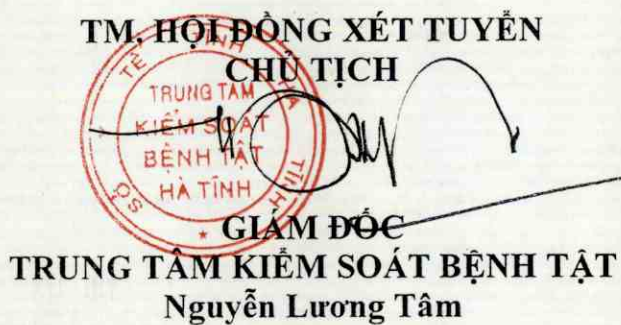 TM. HỘI ĐỒNG XÉT TUYỂN
CHỦ TỊCH
SỞ Y TẾ TỈNH HÀ TĨNH
TRUNG TÂM
KIỂM SOÁT
BỆNH TẬT
HÀ TĨNH
GIÁM ĐỐC
TRUNG TÂM KIỂM SOÁT BỆNH TẬT
Nguyễn Lương Tâm